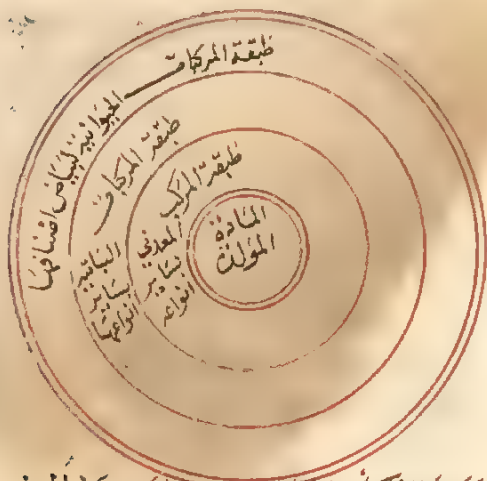 طبقة المركبات الحيوانية بساير اصنافها
طبقة المركبات
النباتية
بساير
انواعها
طبقة المركب
المعدني
بساير
انواعه
المادة
المولدة